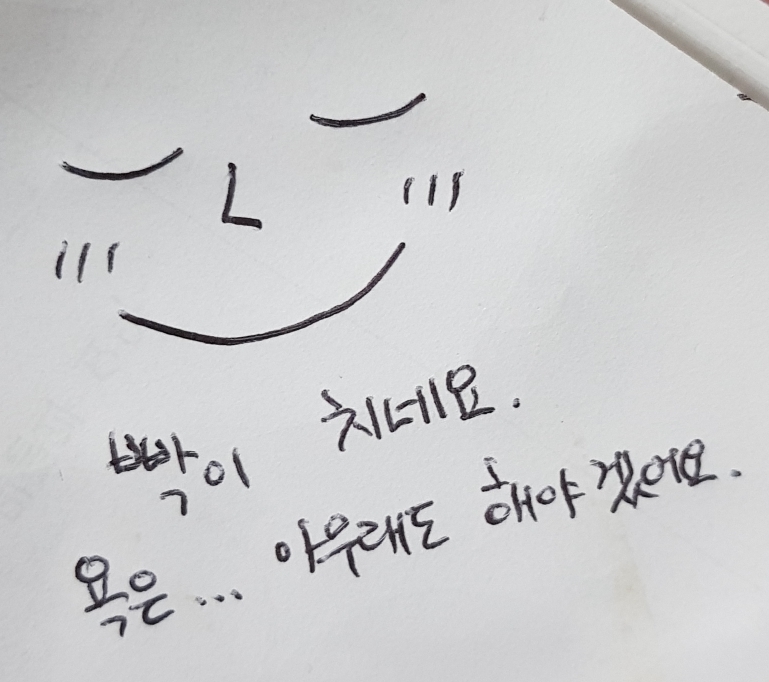 빡이 치네요.
욕은... 아우래도 해야겠어요.